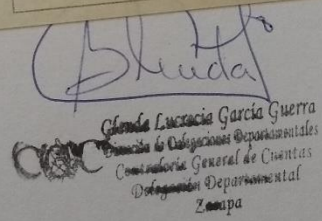 Glenda
Glenda Lucrecia García Guerra
Dirección de Delegaciones Departamentales
Contraloría General de Cuentas
Delegación Departamental
Zacapa